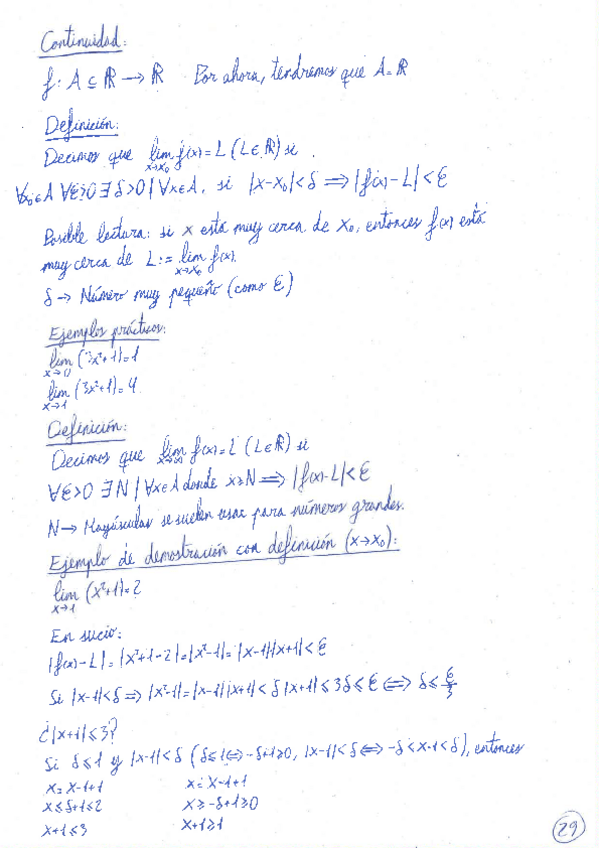 Continuidad:
f: A ⊆ ℝ → ℝ Por ahora, tendremos que A=ℝ
Definición:
Decimos que lim f(x)=L (L∈ℝ) si
x→x₀
∀x₀∈A ∀ε>0 ∃δ>0 | ∀x∈A, si |x-x₀|<δ ⟹ |f(x)-L|<ε
Posible lectura: si x está muy cerca de x₀, entonces f(x) está
muy cerca de L:= lim f(x).
x→x₀
δ → Número muy pequeño (como ε)
Ejemplos prácticos:
lim (3x²+1)=1
x→0
lim (3x²+1)=4
x→1
Definición:
Decimos que lim f(x)=L (L∈ℝ) si
x→∞
∀ε>0 ∃N | ∀x∈A donde x≥N ⟹ |f(x)-L|<ε
N → Mayúsculas se suelen usar para números grandes.
Ejemplo de demostración con definición (x→x₀):
lim (x²+1)=2
x→1
En sucio:
|f(x)-L|=|x²+1-2|=|x²-1|=|x-1||x+1|<ε
Si |x-1|<δ ⟹ |x²-1|=|x-1||x+1|<δ|x+1|≤3δ≤ε ⟺ δ≤ε/3
¿|x+1|≤3?
Si δ≤1 y |x-1|<δ (δ≤1⟺-δ+1≥0, |x-1|<δ⟺-δ<x-1<δ), entonces
x=x-1+1 x=x-1+1
x≤δ+1≤2 x≥-δ+1≥0
x+1≤3 x+1≥1
29